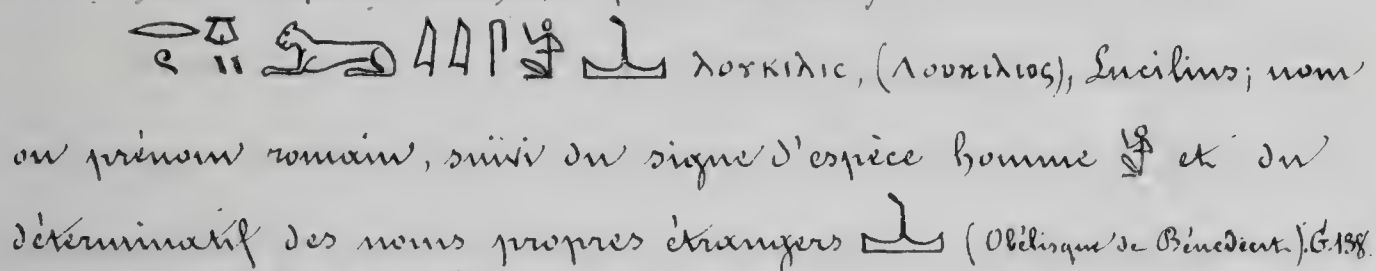 ⲗⲟⲩⲕⲓⲗⲓⲥ, (Λουκιλιος), Lucilius; nom
ou prénom romain, suivi du signe d'espèce homme et du
déterminatif des noms propres étrangers (Obélisque de Bénévent). G. 138.